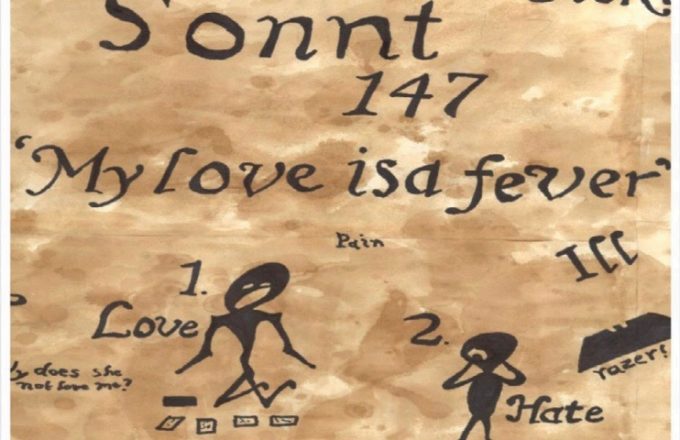 Sonnt
147
'My love is a fever'
Pain
Ill
1.
Love
2.
razer!
y does she
not love me?
Hate